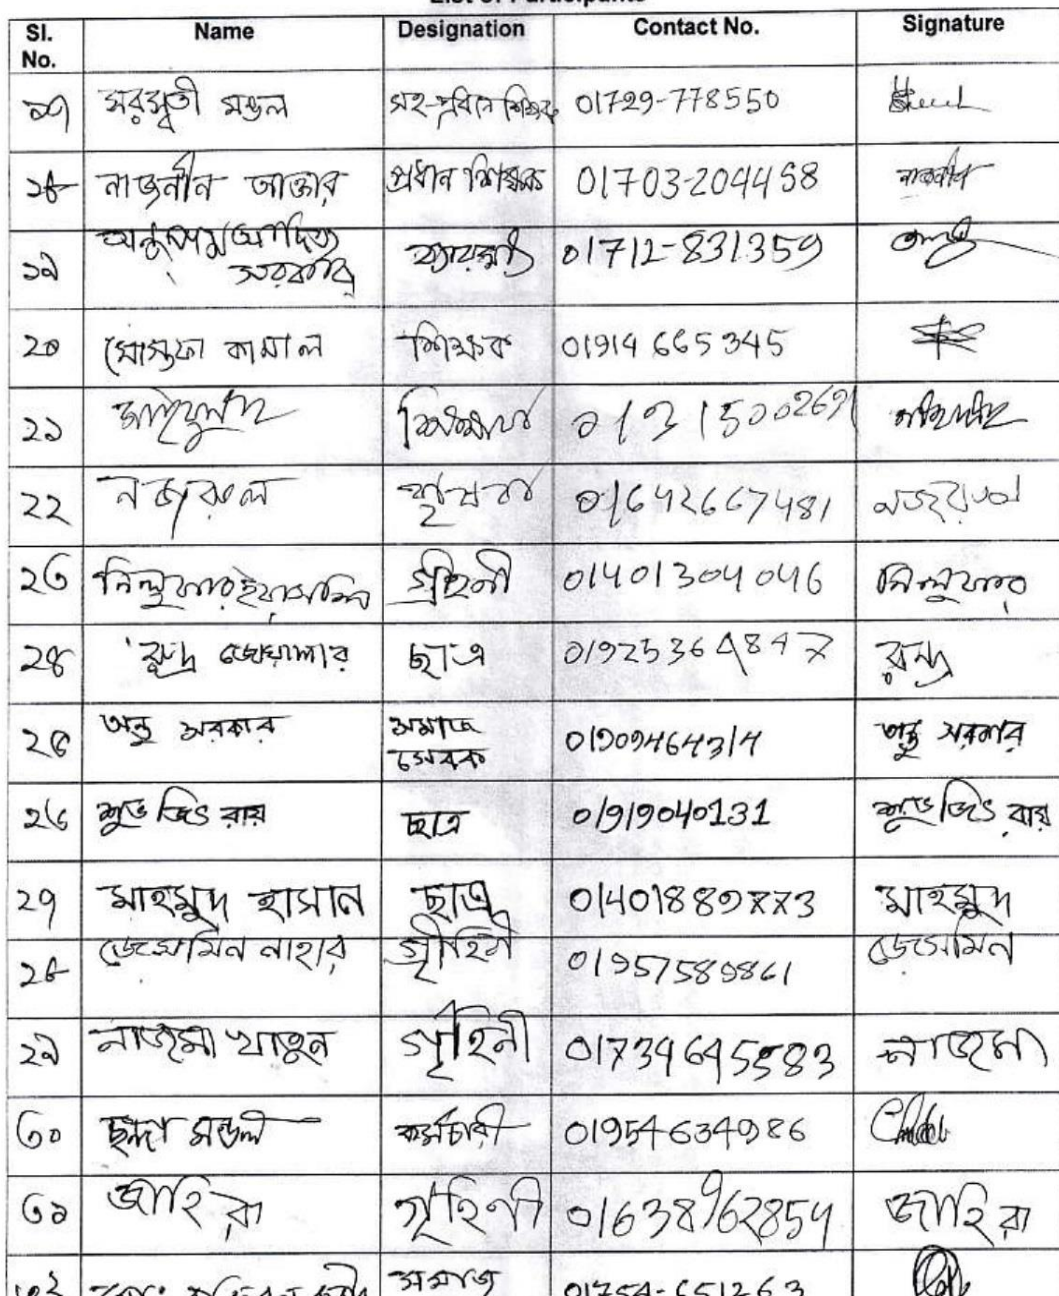 List of Participants
Sl. No. Name Designation Contact No. Signature
১৭ সরস্বতী মন্ডল সহ-প্রধান শিক্ষক 01729-778550
১৮ নাজনীন আক্তার প্রধান শিক্ষক 01703-204458 নাজনীন
১৯ সরকার 01712-831359
২০ মোস্তফা কামাল শিক্ষক 01914 665345
২১
২২ নজরুল কৃষক 01642667481 নজরুল
২৩ নিলুফার ইয়াসমিন গৃহিনী 01401304046 নিলুফার
২৪ রুদ্র জোয়ালার ছাত্র রুদ্র
২৫ অন্তু সরকার সমাজ সেবক অন্তু সরকার
২৬ শুভজিৎ রায় ছাত্র 01919040131 শুভজিৎ রায়
২৭ মাহমুদ হাসান ছাত্র মাহমুদ
২৮ জেসমিন নাহার গৃহিনী 01957589861 জেসমিন
২৯ নাজমা খাতুন গৃহিনী 01734645583 নাজমা
৩০ ছন্দা মন্ডল কর্মচারী 01954634986
৩১ জাহিরা গৃহিনী 01638962854 জাহিরা
৩২ মোঃ সমাজ 01754-651263